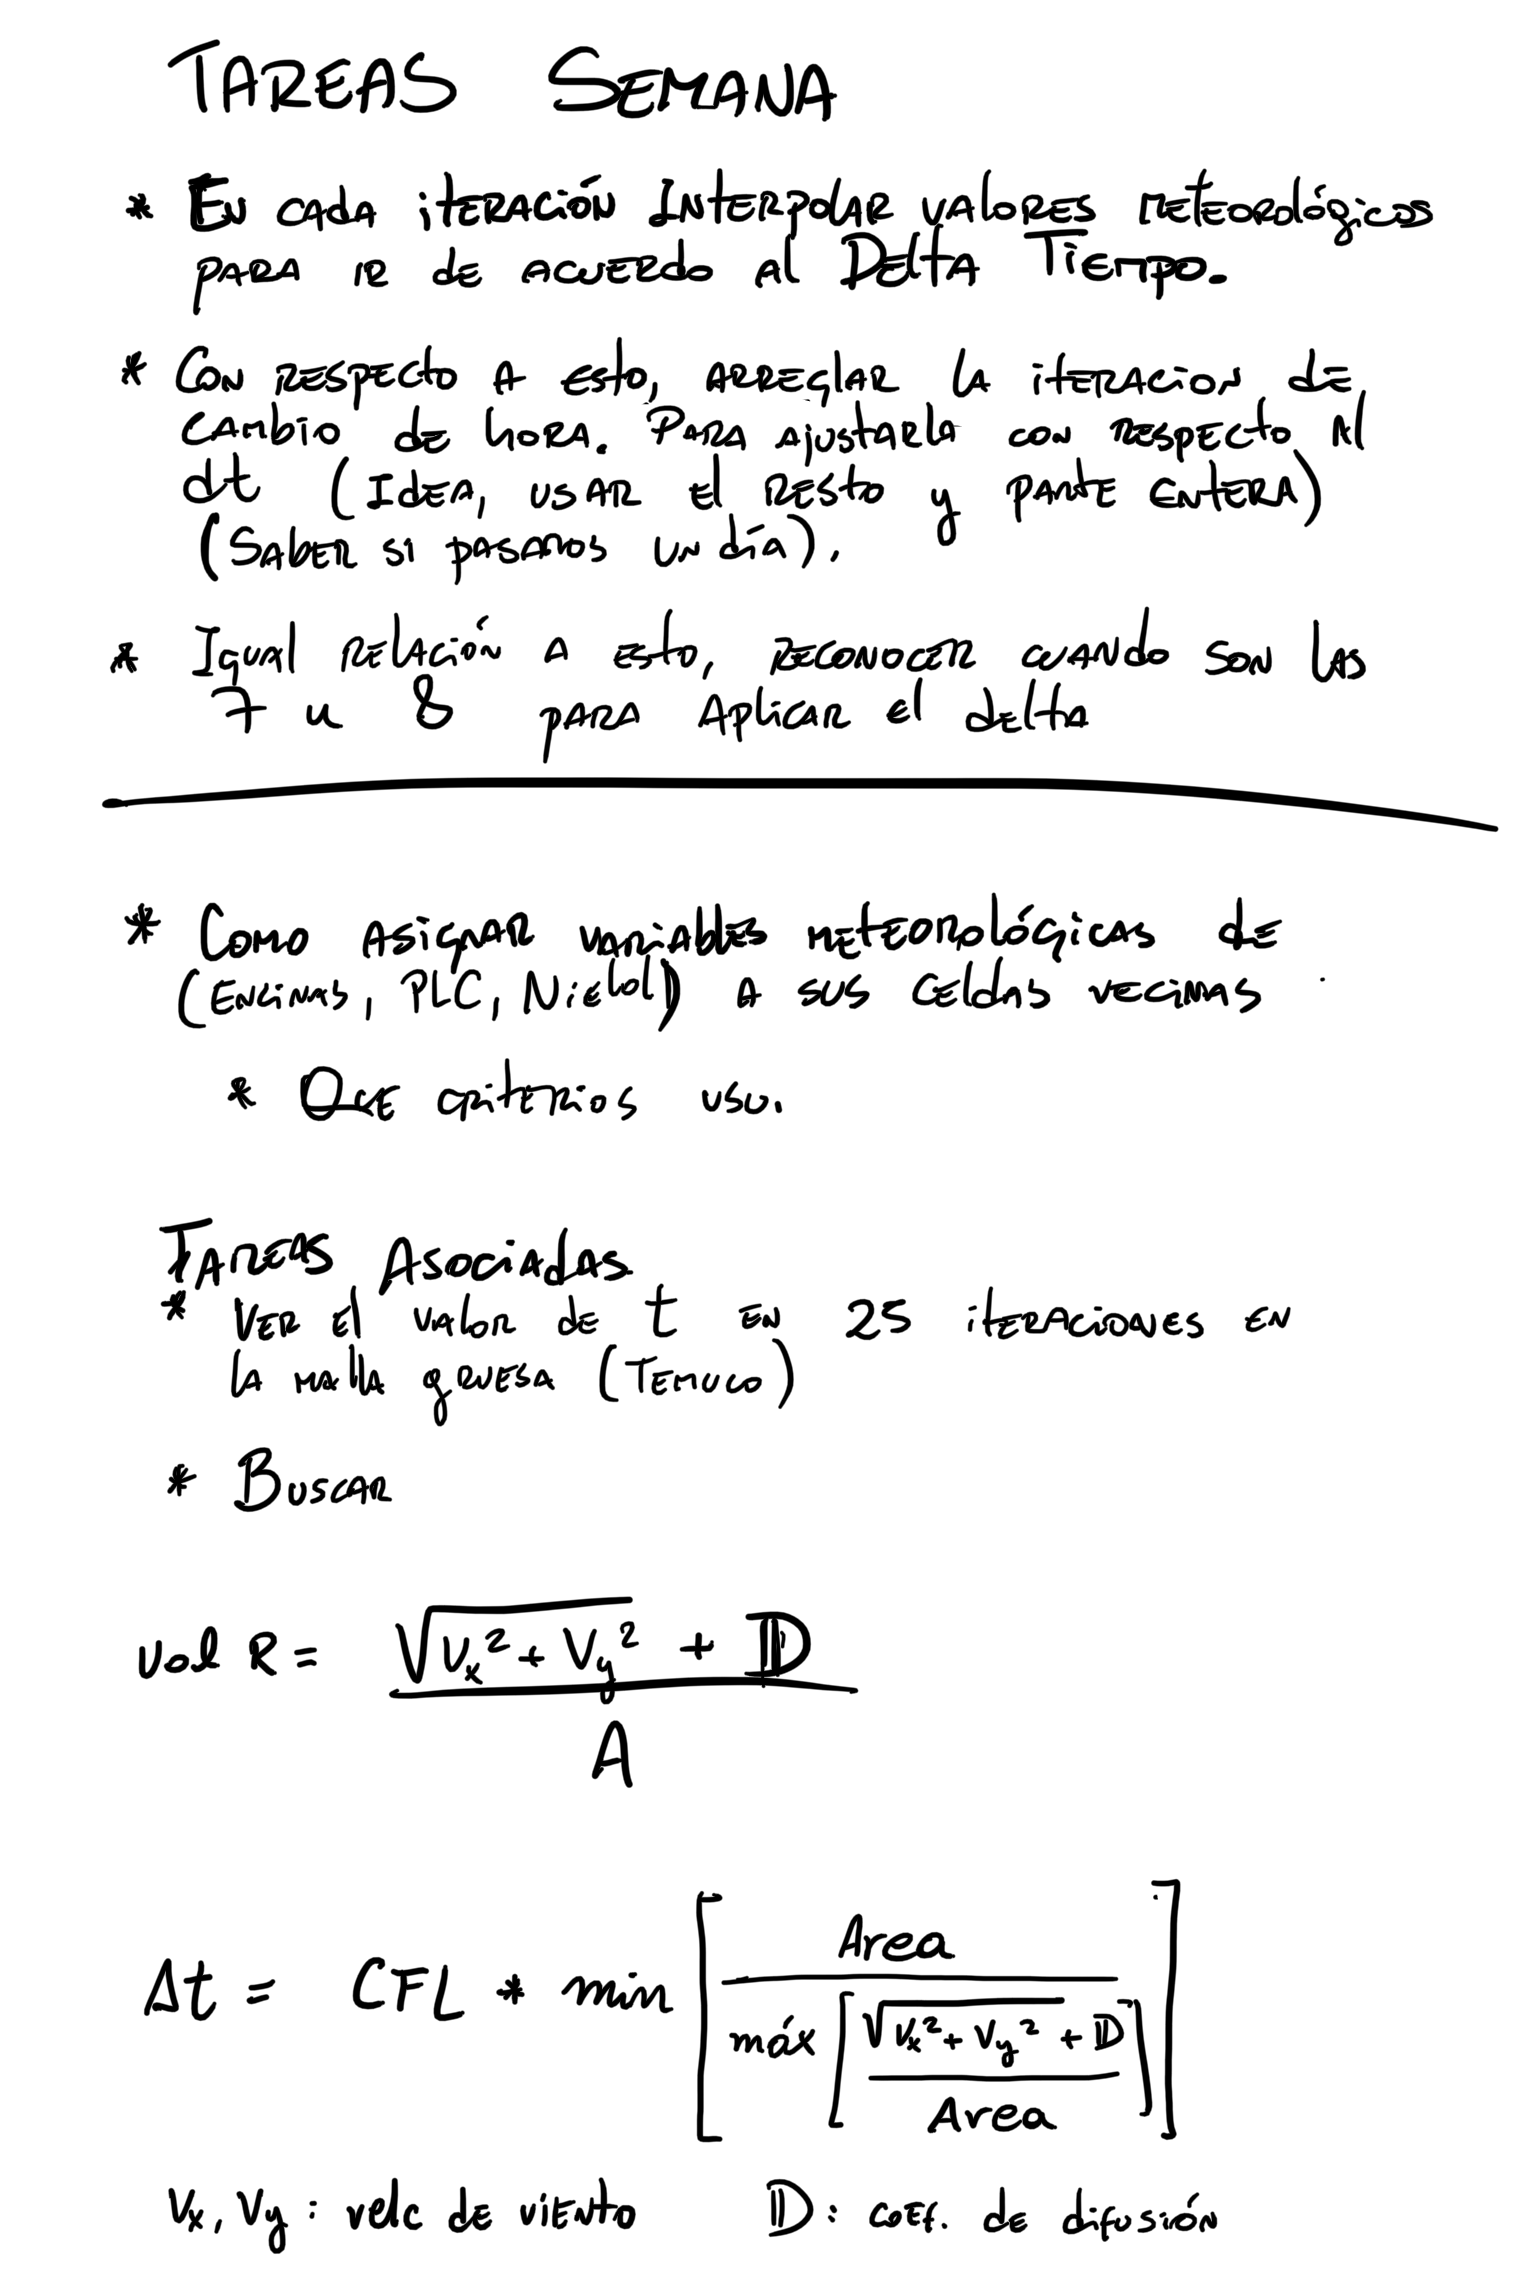 TAREAS SEMANA
* EN CADA ITERACIÓN INTERPOLAR VALORES METEOROLÓGICOS
PARA IR DE ACUERDO AL DELTA TIEMPO.
* CON RESPECTO A ESTO, ARREGLAR LA ITERACION DE
CAMBIO DE HORA. PARA AJUSTARLA CON RESPECTO AL
dt (IDEA, USAR EL RESTO Y PARTE ENTERA)
(SABER SI PASAMOS UN DÍA).
* IGUAL RELACIÓN A ESTO, RECONOCER CUANDO SON LAS
7 u 8 PARA APLICAR EL DELTA
* COMO ASIGNAR VARIABLES METEOROLÓGICAS DE
(ENCINAS, PLC, NIELOL) A SUS CELDAS VECINAS
* QUE CRITERIOS USO.
TAREAS ASOCIADAS
* VER EL VALOR DE t EN 25 ITERACIONES EN
LA MALLA GRUESA (TEMUCO)
* BUSCAR
vol R = √(Vx² + Vy²) + 𝔻
A
Δt = CFL * min [ Area
máx [ √(Vx² + Vy²) + 𝔻
Area ] ]
Vx, Vy : velc DE VIENTO 𝔻 : COEF. DE DIFUSIÓN